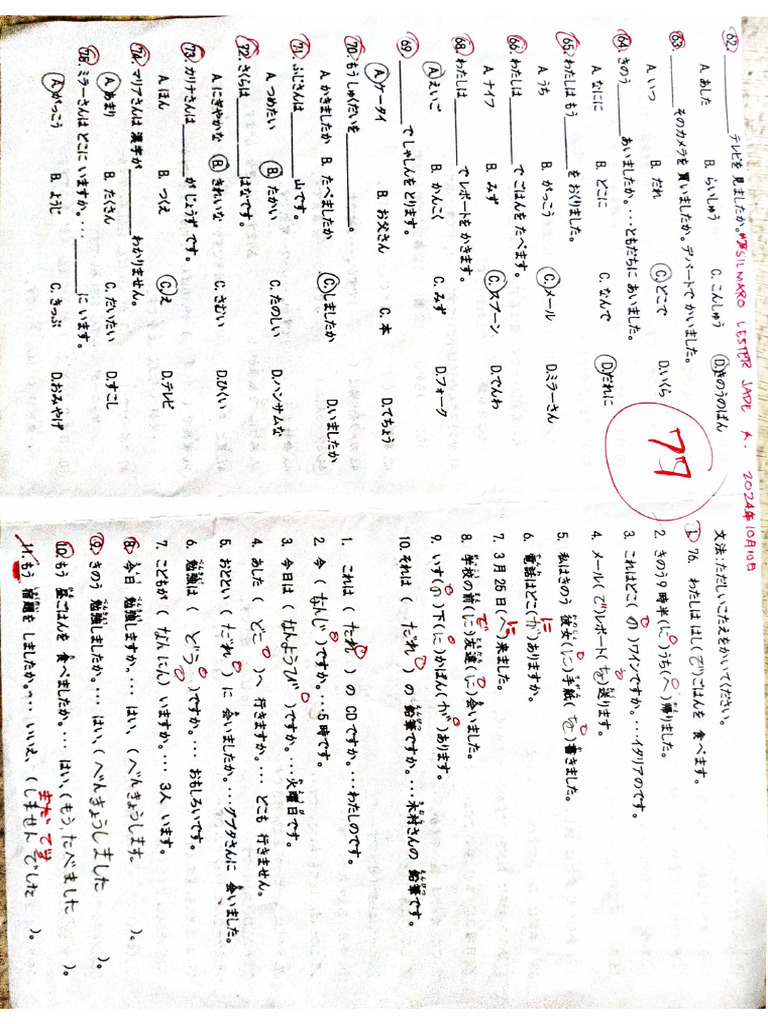 MR SILMARO LESTER JADE A. 2024年10月10日
77
62. ________テレビを 見ましたか。
A. あした B. らいしゅう C. こんしゅう D. きのうのばん
63. ________そのカメラを 買いましたか。デパートで かいました。
A. いつ B. だれ C. どこで D. いくら
64. きのう________あいましたか。…ともだちに あいました。
A. なにに B. どこに C. なんで D. だれに
65. わたしは もう________を おくりました。
A. うち B. がっこう C. メール D. ミラーさん
66. わたしは________で ごはんを たべます。
A. ナイフ B. みず C. スプーン D. でんわ
68. わたしは________で レポートを かきます。
A. えいご B. かんこく C. みず D. フォーク
69. ________で しゃしんを とります。
A. ケータイ B. お父さん C. 本 D. てちょう
70. もう しゅくだいを________。
A. かきましたか B. たべましたか C. しましたか D. いましたか
71. ふじさんは________山です。
A. つめたい B. たかい C. たのしい D. ハンサムな
72. さくらは________はなです。
A. にぎやかな B. きれいな C. さむい D. ひくい
73. カリナさんは________が じょうず です。
A. ほん B. つくえ C. え D. テレビ
74. マリアさんは 漢字が________わかりません。
A. あまり B. たくさん C. だいたい D. すこし
75. ミラーさんは どこに いますか。…________に います。
A. がっこう B. ようじ C. きっぷ D. おみやげ
文法:ただしいこたえをかいてください。
1 76. わたしは はし(で)ごはんを 食べます。
2. きのう9時半(に)うち(へ)帰りました。
3. これはどこ(の)ワインですか。…イタリアのです。
4. メール(で)レポート(を)送ります。
5. 私はきのう 彼女(に)手紙(を)書きました。
6. 電話はどこ(が)ありますか。 に
7. 3月25日(へ)来ました。 に
8. 学校の前(に)友達(に)会いました。 で
9. いす(の)下(に)かばん(が)あります。
10. それは( だれ )の 鉛筆ですか。…木村さんの 鉛筆です。
1. これは( だれ )の CDですか。…わたしのです。
2. 今( なんじ )ですか。…5時です。
3. 今日は( なんようび )ですか。…火曜日です。
4. あした( どこ )へ 行きますか。… どこも 行きません。
5. おととい( だれ )に 会いましたか。…グプタさんに 会いました。
6. 勉強は( どう )ですか。… おもしろいです。
7. こどもが( なんにん )いますか。… 3人 います。
8. 今日 勉強しますか。… はい、( べんきょうします )。
9. きのう 勉強しましたか。… はい、( べんきょうしました )。
10. もう 昼ごはんを 食べましたか。… はい、( もう、たべました )。
11. もう 宿題を しましたか。… いいえ、( しませんでした )。
まだです